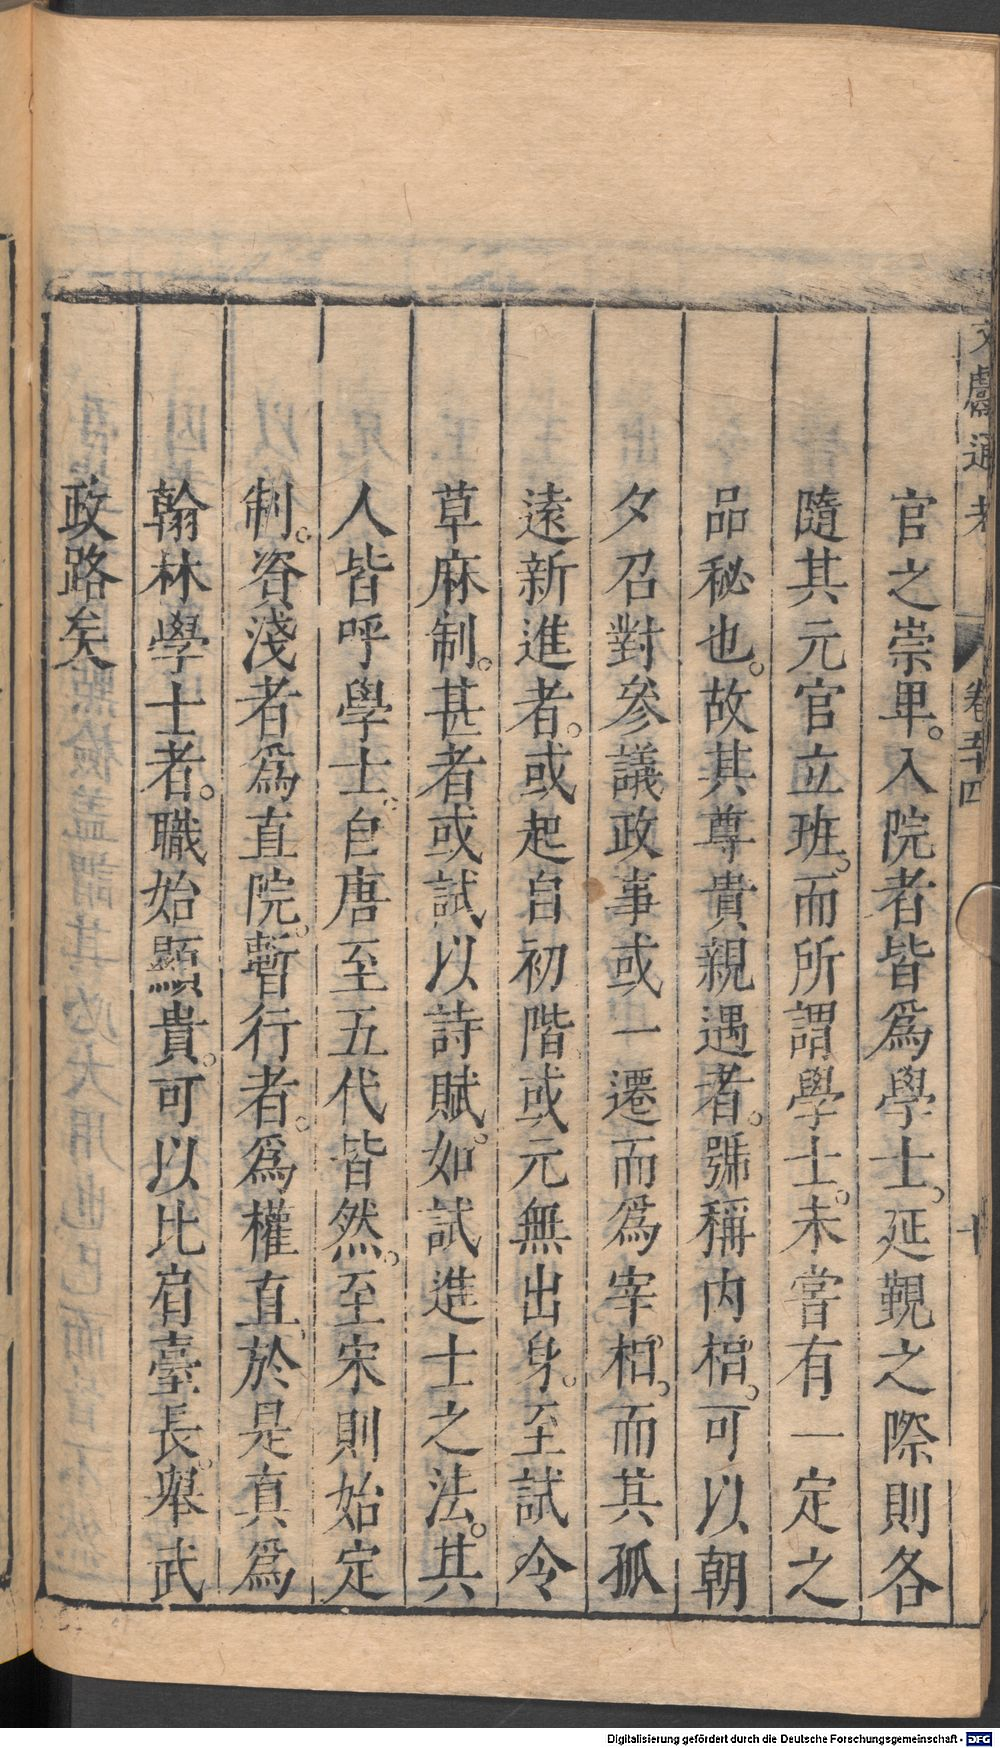 文獻通考 卷五十四 十
官之崇卑。入院者皆爲學士。延覲之際則各
隨其元官立班。而所謂學士。未嘗有一定之
品秘也。故其尊貴親遇者。號稱内相。可以朝
夕召對參議政事或一遷而爲宰相。而其孤
遠新進者。或起自初階或元無出身。至試令
草麻制。甚者或試以詩賦。如試進士之法。其
人皆呼學士。自唐至五代皆然。至宋則始定
制。資淺者爲直院。暫行者。爲權直於是真爲
翰林學士者。職始顯貴。可以比肩臺長。舉武
政路矣
Digitalisierung gefördert durch die Deutsche Forschungsgemeinschaft - DFG